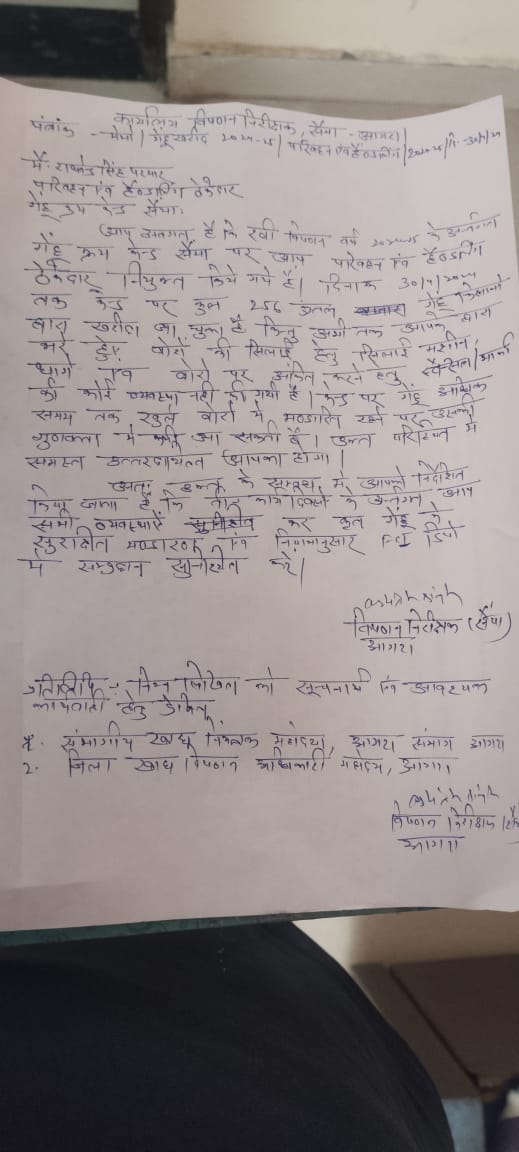 कार्यालय विपणन निरीक्षक, सैंया - आगरा।
पत्रांक - मेमो / गेंहू खरीद 2024-25 / परिवहन एवं हैण्डलिंग / 2024-25 / दि.- 30/4/24
मै. सिंह परमार
परिवहन एवं हैण्डलिंग ठेकेदार
गेंहू क्रय केन्द्र सैंया।
आप अवगत हैं कि रबी विपणन वर्ष 2024-25 के अन्तर्गत
गेंहू क्रय केन्द्र सैंया पर आप परिवहन एवं हैण्डलिंग
ठेकेदार नियुक्त किये गये हैं। दिनांक 30/4/2024
तक केन्द्र पर कुल 256 कुंतल गेंहू किसानो
द्वारा खरीदा जा चुका है किन्तु अभी तक आपके द्वारा
भरे हुए बोरों की सिलाई हेतु सिलाई मशीन,
धागे एवं बोरो पर अंकित करने हेतु स्टैन्सिल/मार्का
की कोई व्यवस्था नही की गयी है। केन्द्र पर गेंहू अधिक
समय तक खुले बोरो मे भण्डारित रखे पर उसकी
गुणवत्ता मे कमी आ सकती है। उक्त परिस्थिति में
समस्त उत्तरदायित्व आपका होगा।
अतः उक्त के सम्बन्ध में आपको निर्देशित
किया जाता है कि तीन कार्य दिवसो के अन्तर्गत आप
सभी व्यवस्थायें सुनिश्चित कर क्रत गेंहू के
सुरक्षित भण्डारण एवं नियमानुसार FCI डिपो
में सम्प्रदान सुनिश्चित करें।
विपणन निरीक्षक (सैंया)
आगरा
प्रतिलिपि:- निम्न लिखित को सूचनार्थ एवं आवश्यक
कार्यवाही हेतु प्रेषित
1. संभागीय खाद्य नियंत्रक महोदय, आगरा संभाग आगरा
2. जिला खाद्य विपणन अधिकारी महोदय, आगरा।
विपणन निरीक्षक
आगरा